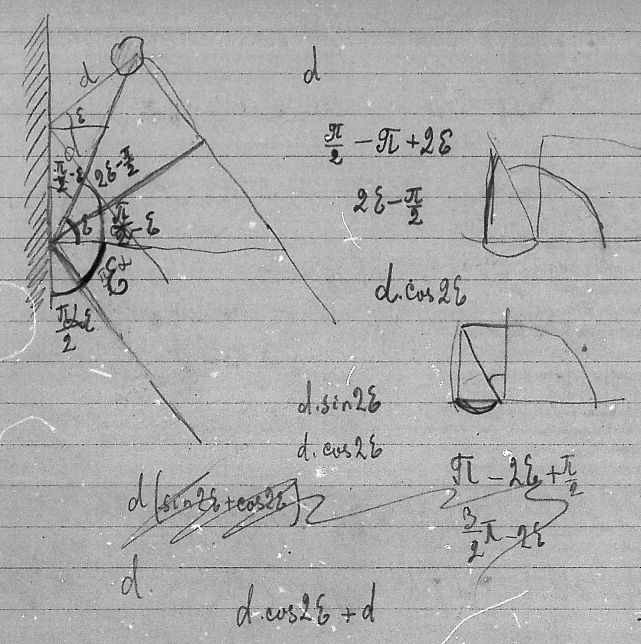 d
d
ε
π/2 - π + 2ε
π/2 - ε
2ε - π/2
2ε - π/2
ε
π/2 - ε
d·cos2ε
d·sin2ε
d·cos2ε
d(sin2ε+cos2ε)
π - 2ε + π/2
3/2π - 2ε
d.
d·cos2ε + d